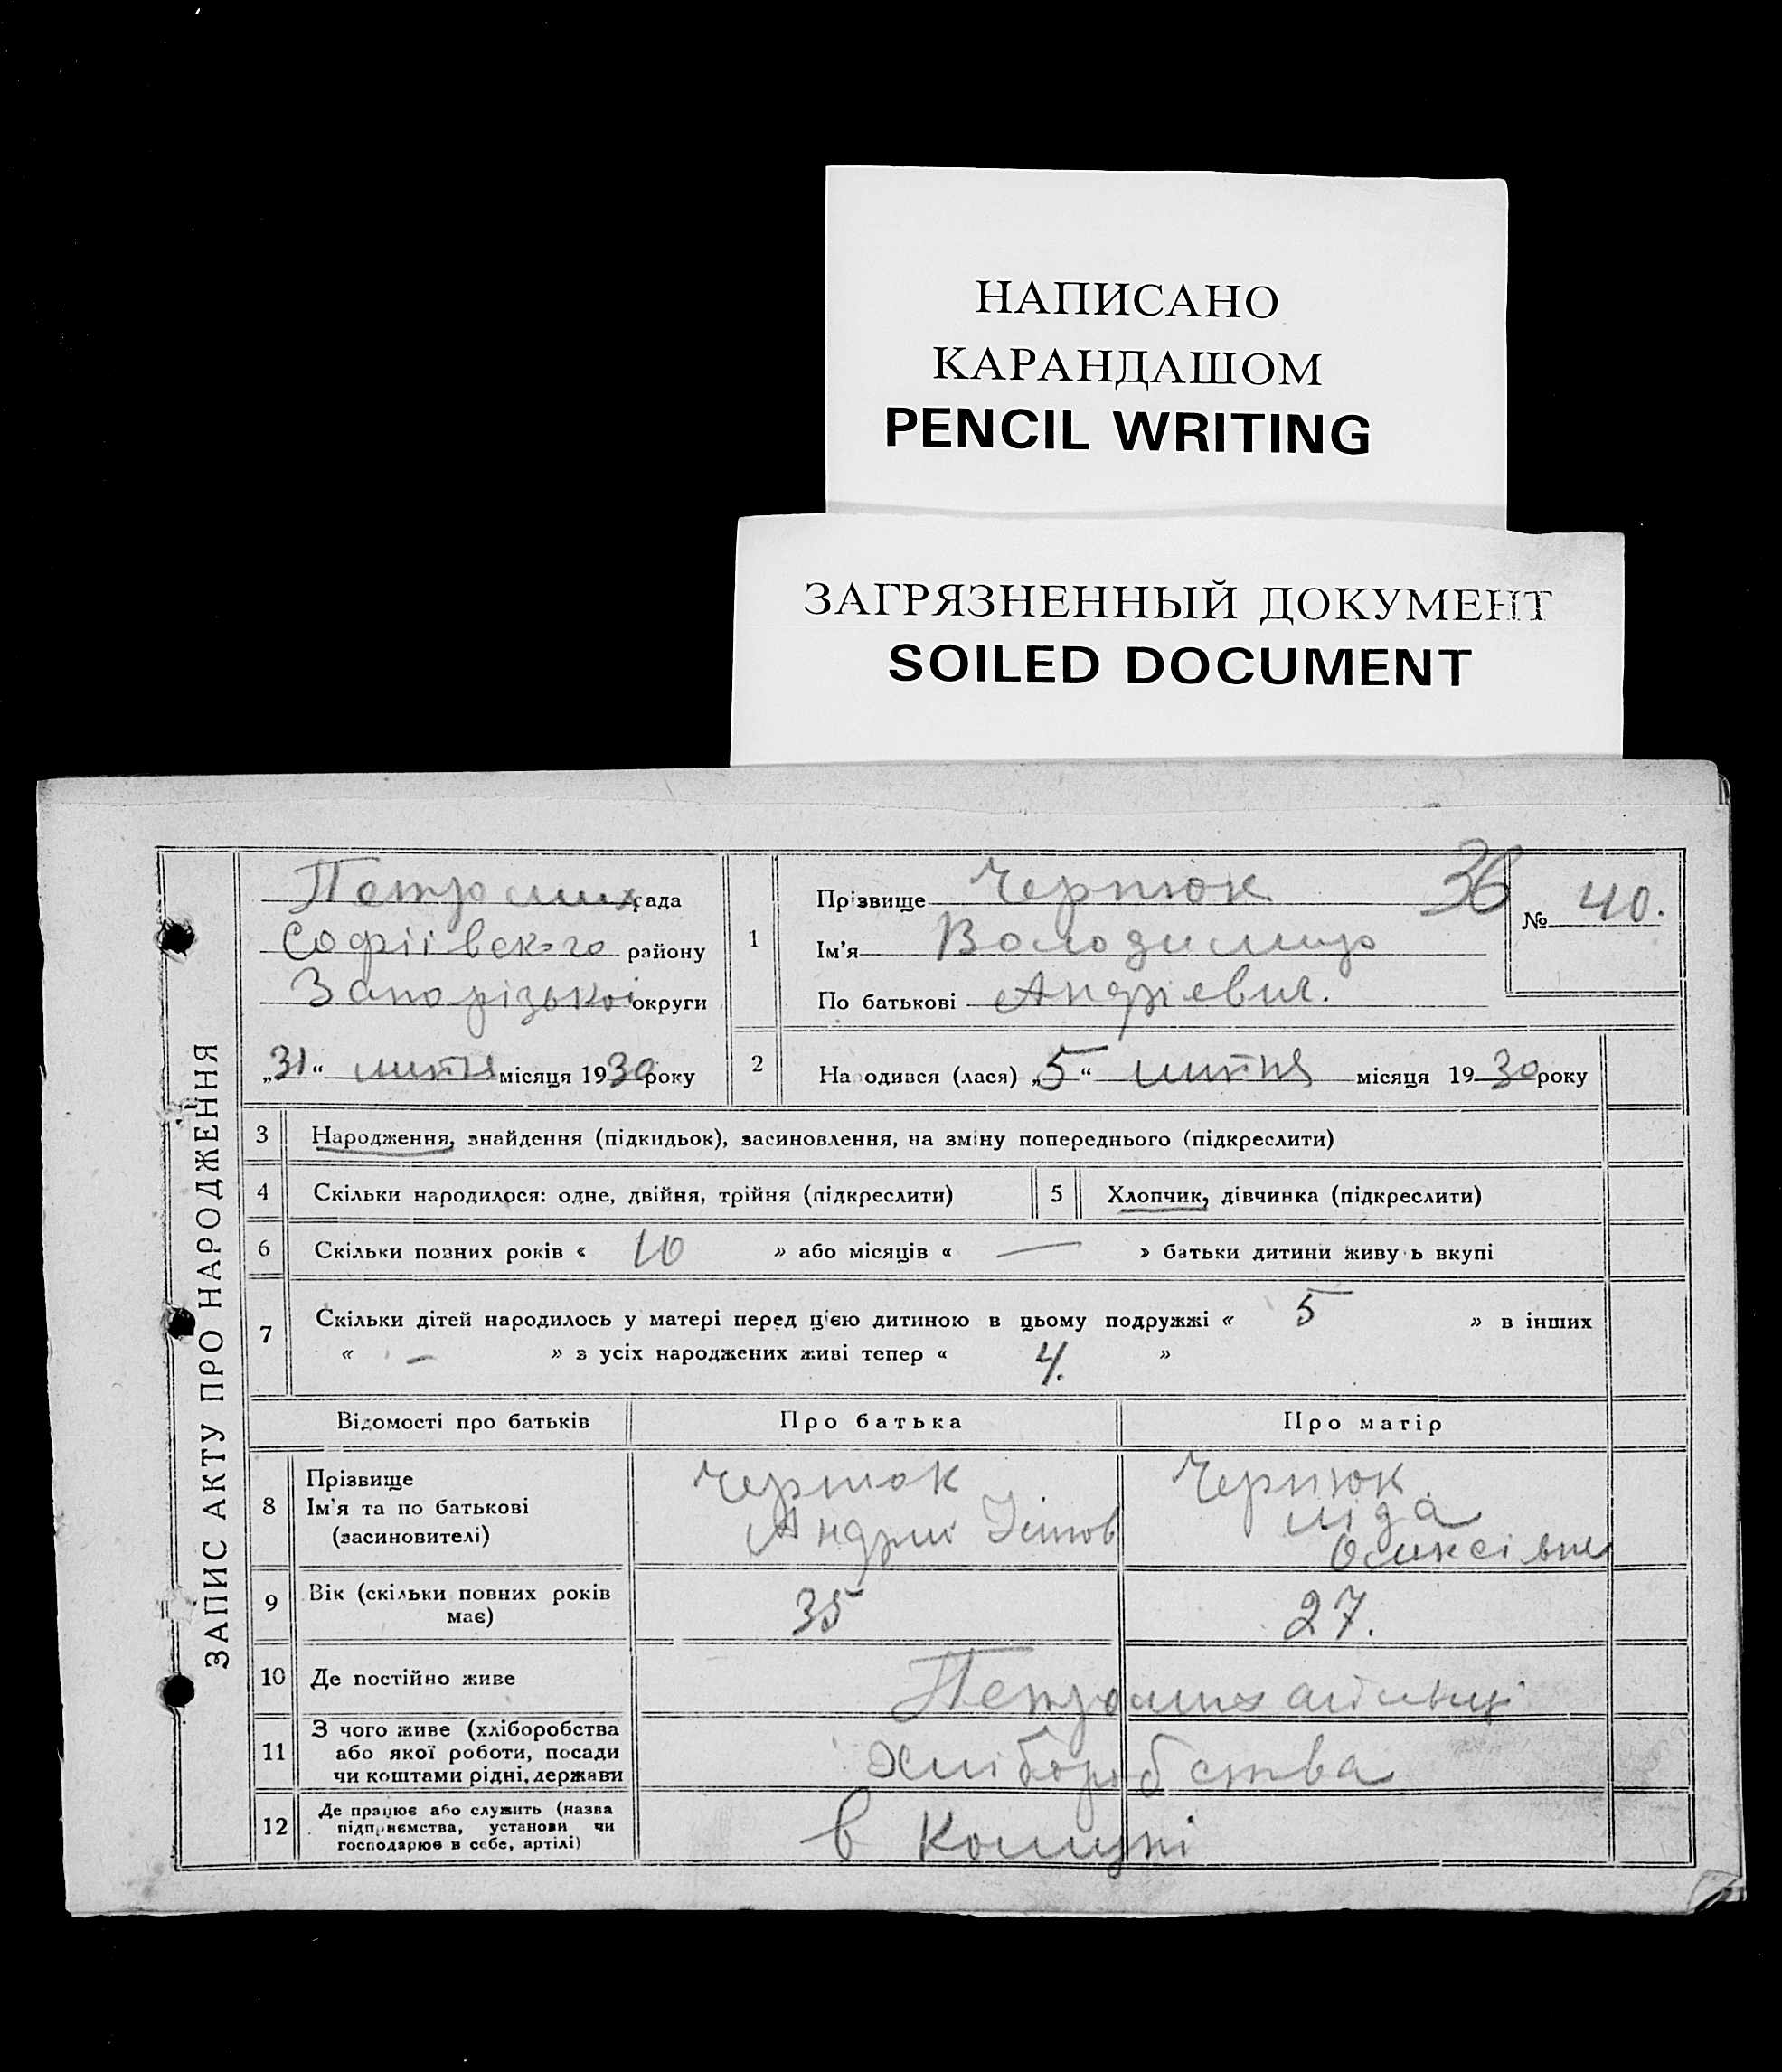 НАПИСАНО
КАРАНДАШОМ
PENCIL WRITING
ЗАГРЯЗНЕННЫЙ ДОКУМЕНТ
SOILED DOCUMENT
ЗАПИС АКТУ ПРО НАРОДЖЕННЯ
Петромих рада
Софіївского району
Запорізької округи
„31“ липня місяця 1930 року
1 Прізвище Чернюк 36
Ім’я Володимир
По батькові Андрієвич.
№ 40.
2 Народився (лася) „5“ липня місяця 1930 року
3 Народження, знайдення (підкидьок), засиновлення, на зміну попереднього (підкреслити)
4 Скільки народилося: одне, двійня, трійня (підкреслити) 5 Хлопчик, дівчинка (підкреслити)
6 Скільки повних років « 10 » або місяців « — » батьки дитини живуть вкупі
7 Скільки дітей народилось у матері перед цією дитиною в цьому подружжі « 5 » в інших
« – » з усіх народжених живі тепер « 4. »
Відомості про батьків Про батька Про матір
8 Прізвище
Ім’я та по батькові
(засиновителі)
Чернюк
Андрій
Чернюк
Ліда
Олексівна
9 Вік (скільки повних років
має)
35 27.
10 Де постійно живе Петромихайлівці
11 З чого живе (хліборобства
або якої роботи, посади
чи коштами рідні, держави
Хліборобства
12 Де працює або служить (назва
підприємства, установи чи
господарює в себе, артілі)
в комуні